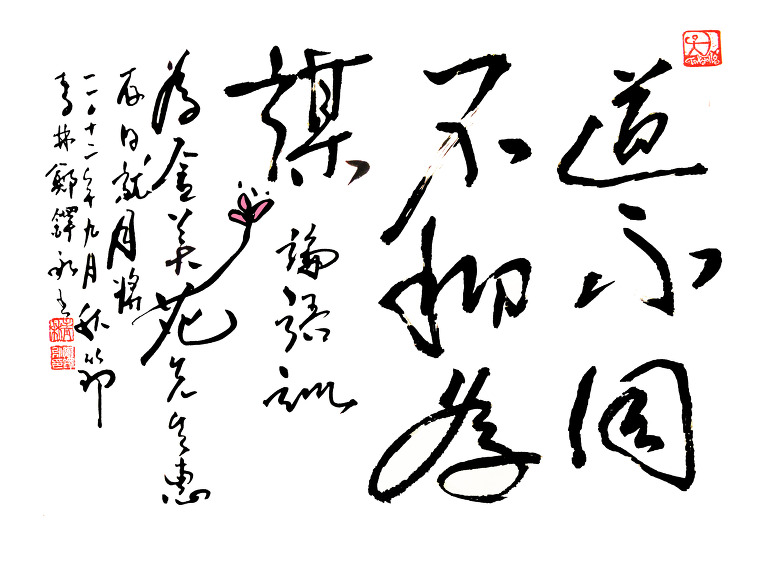 道不同
不相為
謀
論語訓
為金美花先生惠
存日就月將
二〇十二年九月秋節
青林鄭鐸永